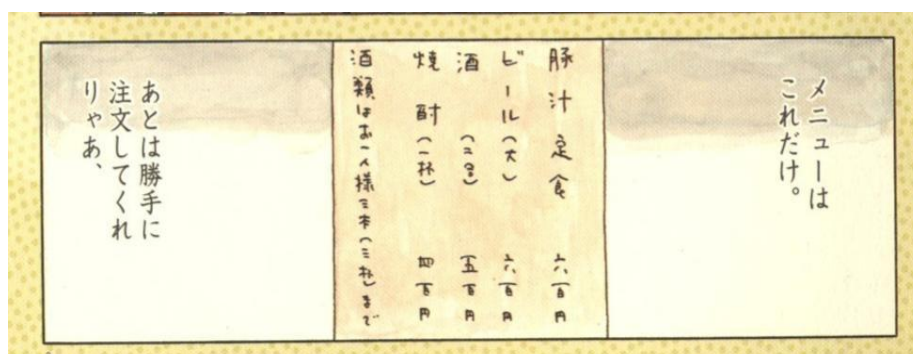 メニューは
これだけ。
豚汁定食 六百円
ビール(大) 六百円
酒(二合) 五百円
焼酎(一杯) 四百円
酒類はお一人様三本(三杯)まで
あとは勝手に
注文してくれ
りゃあ、